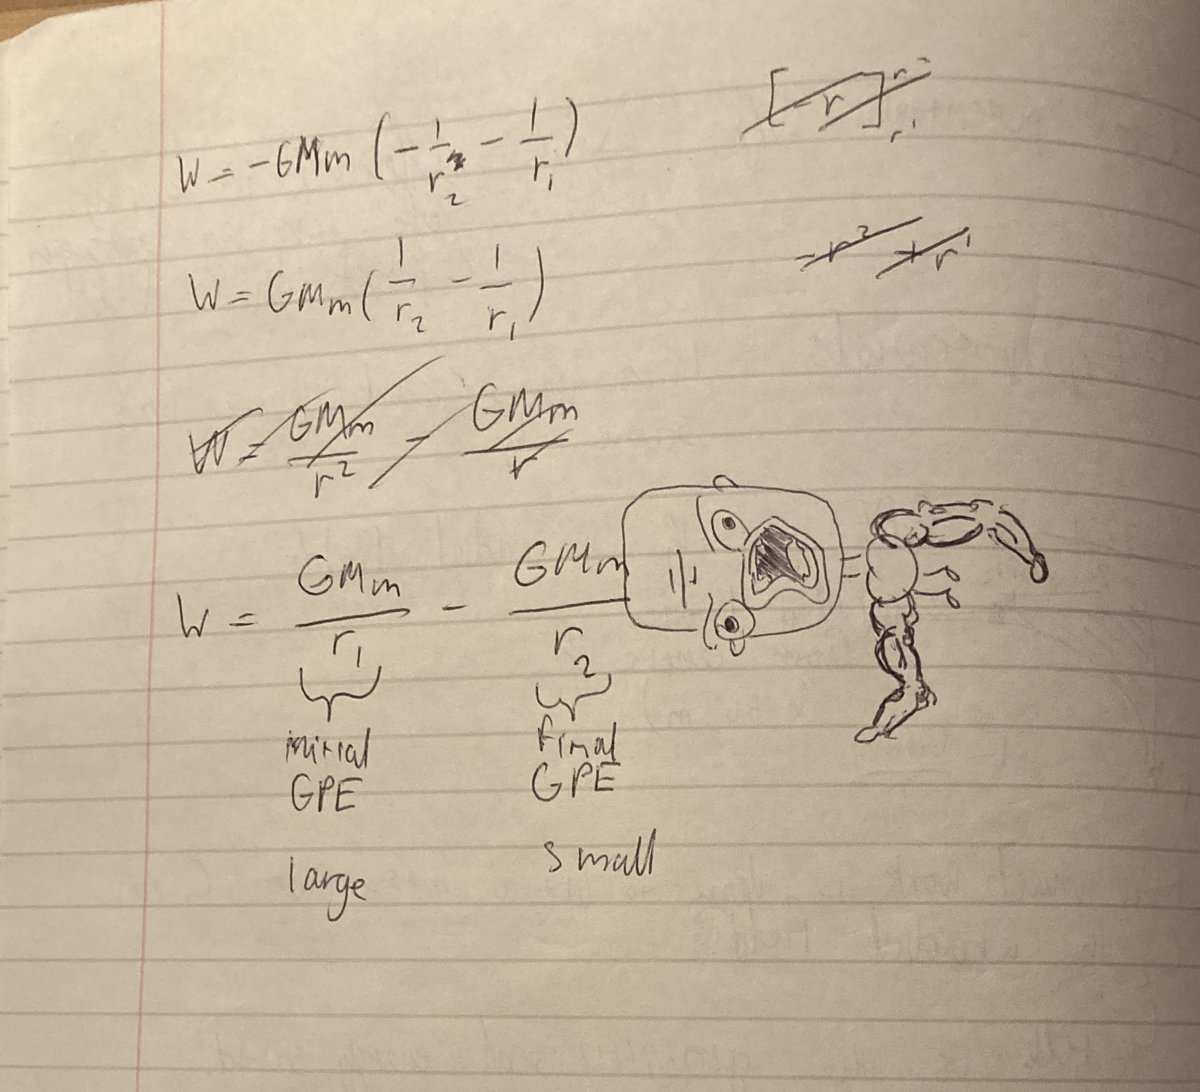 W = -GMm (-1/r₂ - 1/r₁)
[-r]r²r¹
W = GMm (1/r₂ - 1/r₁)
-r² + r¹
W = GMm/r² - GMm/r
W = GMm/r₁ - GMm/r₂
initial final
GPE GPE
large small